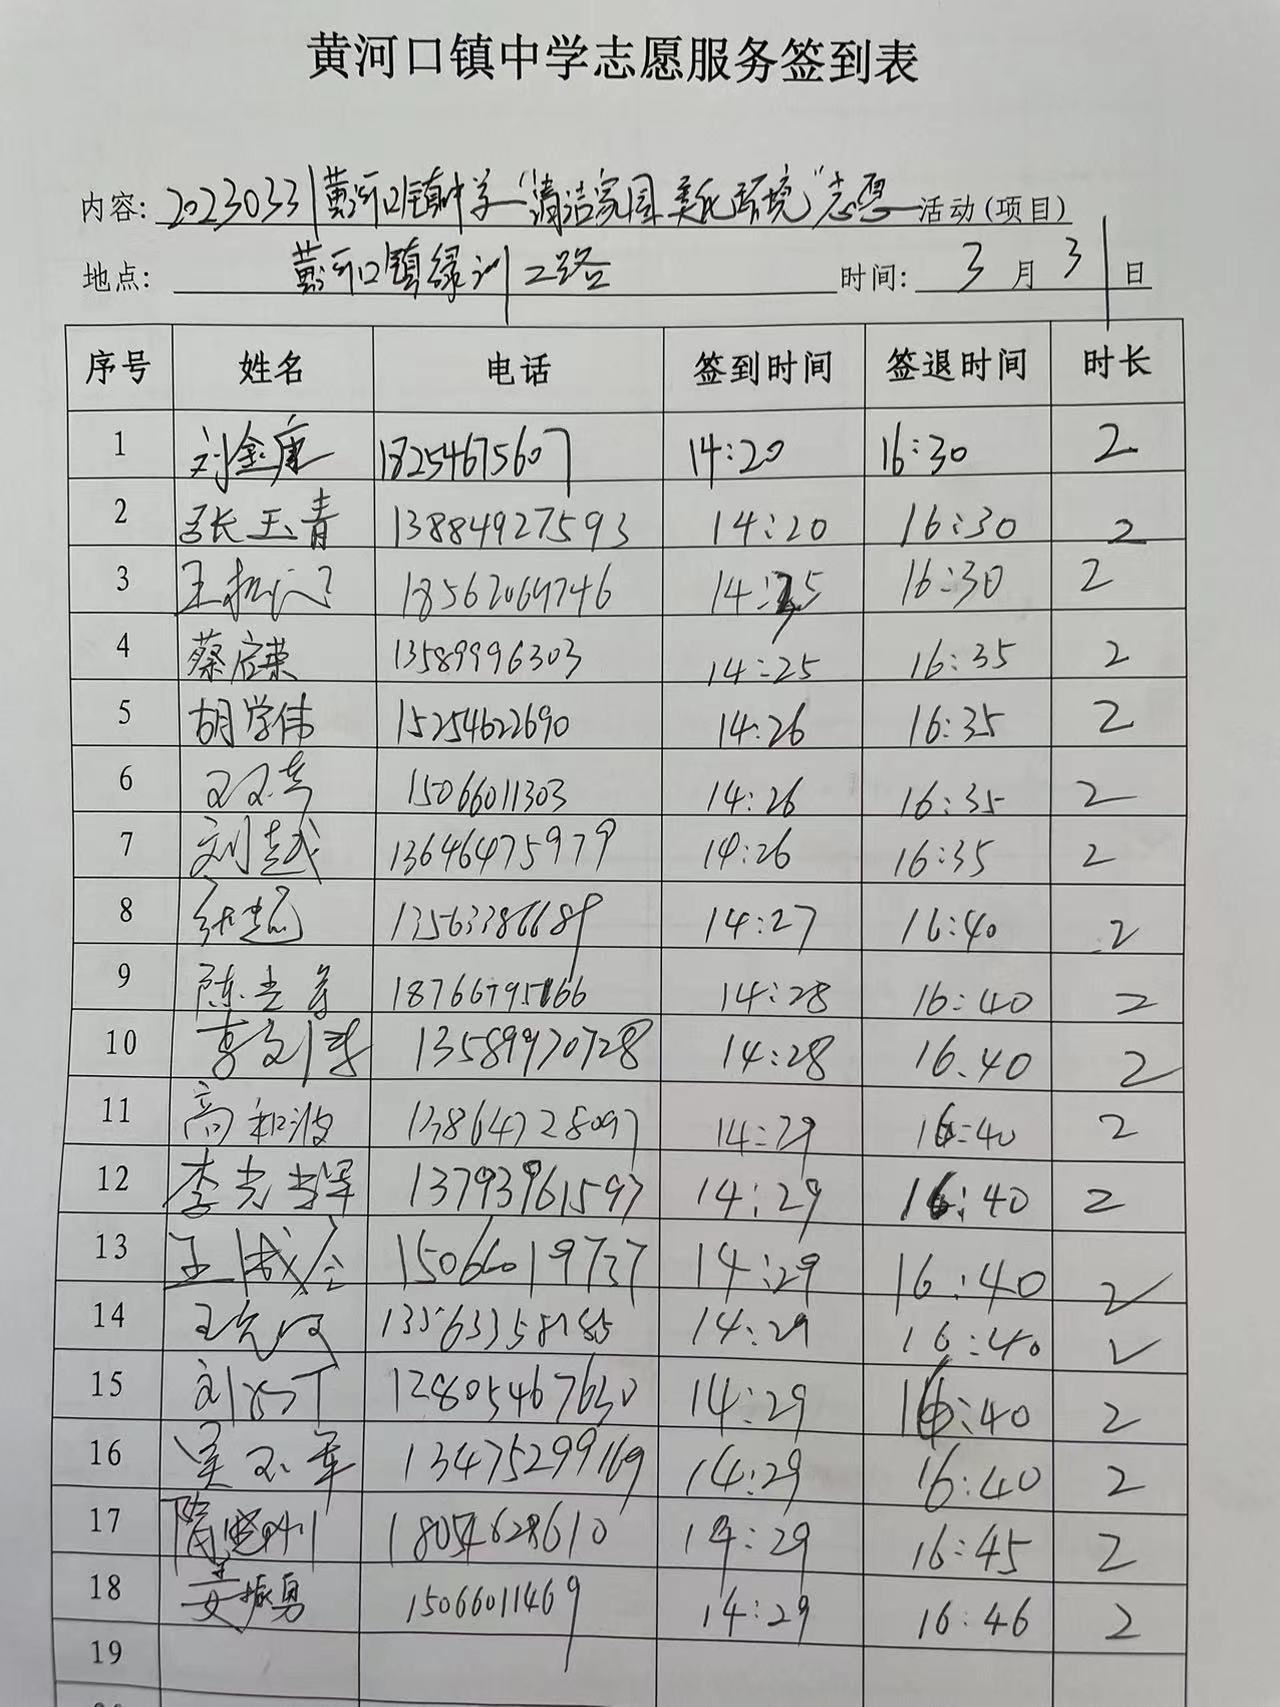 黄河口镇中学志愿服务签到表
内容: 20230331黄河口镇中学“清洁家园 美化环境”志愿 活动(项目)
地点: 黄河口镇绿洲二路 时间: 3 月 31 日
序号 姓名 电话 签到时间 签退时间 时长
1 刘金唐 18254675607 14:20 16:30 2
2 张玉青 13884927593 14:20 16:30 2
3 18562069746 16:30 2
4 蔡启荣 13589996303 14:25 16:35 2
5 胡学伟 15254622690 14:26 16:35 2
6 15066011303 14:26 16:35 2
7 刘越 13646475979 14:26 16:35 2
8 13563386689 14:27 16:40 2
9 14:28 16:40 2
10 13589970728 14:28 16.40 2
11 高和波 13864728097 14:29 16:40 2
12 李光军 13793961597 14:29 16:40 2
13 王成全 15066019737 14:29 16:40 2
14 14:29 16:40 2
15 14:29 16:40 2
16 吴玉军 13475299169 14:29 16:40 2
17 18054628610 14:29 16:45 2
18 姜振勇 15066011469 14:29 16:46 2
19